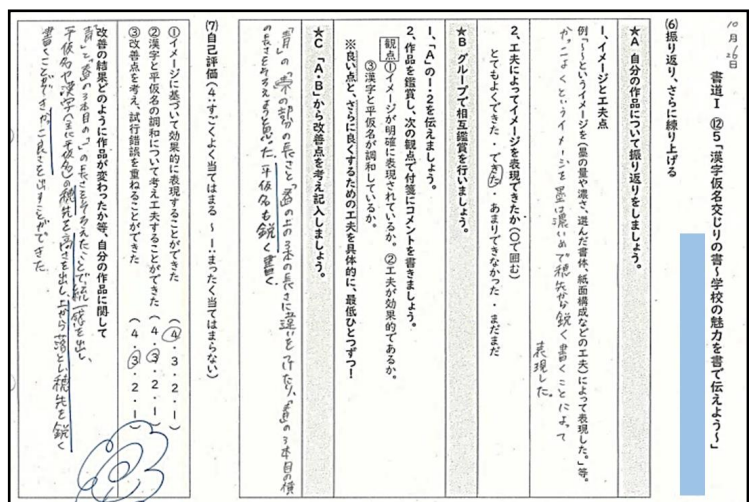 10月26日
書道Ⅰ ⑫5「漢字仮名交じりの書～学校の魅力を書で伝えよう～」
(6)振り返り、さらに練り上げる
★A 自分の作品について振り返りをしましょう。
1、イメージと工夫点
例「～というイメージを(墨の量や濃さ、選んだ書体、紙面構成などの工夫)によって表現した。」等。
かっこよくというイメージを墨は濃いめで穂先から鋭く書くことによって
表現した。
2、工夫によってイメージを表現できたか(○で囲む)
とてもよくできた・できた・あまりできなかった・まだまだ
★B グループで相互鑑賞を行いましょう。
1、「A」の1・2を伝えましょう。
2、作品を鑑賞し、次の観点で付箋にコメントを書きましょう。
観点 ①イメージが明確に表現されているか。 ②工夫が効果的であるか。
③漢字と仮名が調和しているか。
※良い点と、さらに良くするための工夫を具体的に、最低ひとつずつ!
★C 「A・B」から改善点を考え記入しましょう。
「青」の 部分の長さと「春」の上の3本の長さに違いをつけたり、「春」の3本目の横
の長さをそろえようと思った。平仮名も鋭く書く。
(7)自己評価(4:すごくよく当てはまる ～ 1:まったく当てはまらない)
①イメージに基づいて効果的に表現することができた (4・3・2・1)
②漢字と平仮名の調和について考え工夫することができた (4・3・2・1)
③改善点を考え、試行錯誤を重ねることができた (4・3・2・1)
改善の結果どのように作品が変わったか等、自分の作品に関して
「青」と「春」の3本目の の長さをそろえたことで統一感を出し、
平仮名や漢字(主に平仮名)の穂先を高さを出し、上から落とし穂先を鋭く
書くことができ、かっこ良さを出すことができた